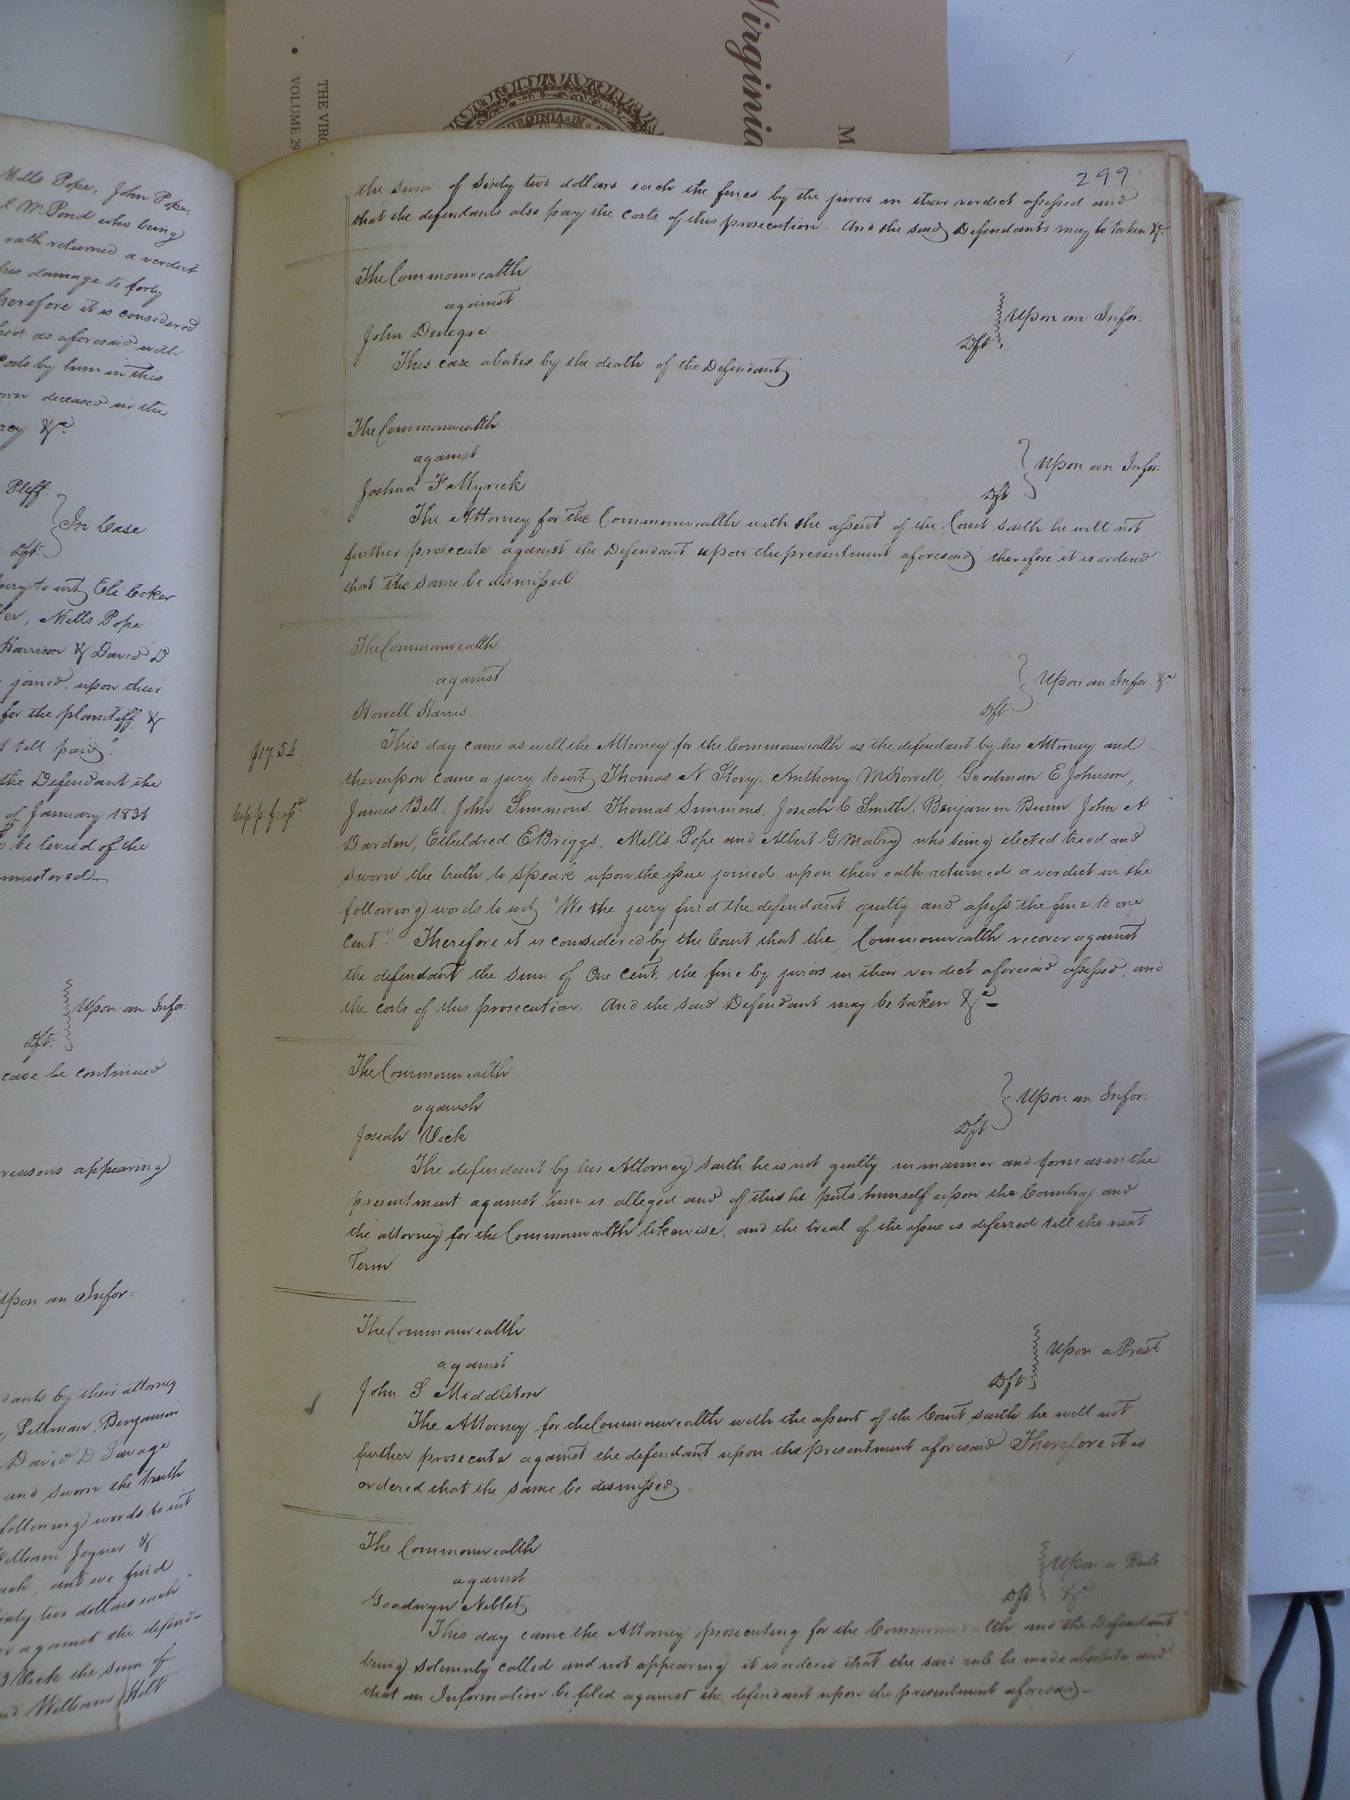 Virginia
M
THE VIRG
VOLUME 29
VIRGINIA IN
Mills Pope, John Pope,
McPond who being
oath returned a verdict
his damage to forty
herefore it is considered
as aforesaid with
costs by him in this
deceased in the
&c.
Pltff
In Case
Dft.
jury to wit, Eli Coker
Mills Pope
Harrison & David D
joined, upon their
for the plaintiff &
till paid"
the Defendant the
of January 1831
be levied of the
Upon an Infor:
Dft:
case be continued
reasons appearing
Upon an Infor:
dants by their attorney
Pittman, Benjamin
David D Savage
and sworn the truth
following words to wit
William Joyner &
each, and we find
sixty two dollars each"
r against the defend-
the sum of
and William Holt
299
the sum of sixty two dollars each the fines by the jurors in their verdict assessed and
that the defendants also pay the costs of this prosecution. And the said Defendants may be taken &c.
The Commonwealth
against
Upon an Infor.
John
Dft.
This case abates by the death of the Defendant
The Commonwealth
against
Upon an Infor.
Joshua F Myrick
Dft
The Attorney for the Commonwealth with the assent of the Court saith he will not
further prosecute against the Defendant upon the presentment aforesaid therefore it is ordered
that the same be dismissed
The Commonwealth
against
Upon an Infor. &c
Howell Harris
Dft.
$17.54
This day came as well the Attorney for the Commonwealth as the defendant by his Attorney and
thereupon came a jury to wit, Thomas N Story, Anthony McHowell, Goodman E Johnson,
James Bell, John Simmons, Thomas Simmons, Josiah C Smith, Benjamin Bunn John A
Darden, Etheldred E Briggs, Mills Pope and Albert G Mabry who being elected tried and
sworn the truth to speak upon the issue joined upon their oath returned a verdict in the
following words to wit, "We the jury find the defendant guilty and assess the fine to one
cent." Therefore it is considered by the Court that the Commonwealth recover against
the defendant the sum of One cent, the fine by jurors in their verdict aforesaid assessed, and
the costs of this prosecution. And the said Defendant may be taken &c—
The Commonwealth
against
Upon an Infor:
Josiah Vick
Dft
The defendant by his Attorney saith he is not guilty in manner and form as in the
presentment against him is alleged and of this he puts himself upon the Country and
the attorney for the Commonwealth likewise, and the trial of the issue is deferred till the next
Term
The Commonwealth
against
Upon a Prest.
John S Middleton
Dft
The Attorney for the Commonwealth with the assent of the Court saith he will not
further prosecute against the defendant upon the presentment aforesaid Therefore it is
ordered that the same be dismissed
The Commonwealth
against
Upon a Rule
Goodwyn Niblet
Dft. &c.
This day came the Attorney prosecuting for the Commonwealth and the Defendant
being solemnly called and not appearing it is ordered that the said rule be made absolute and
that an Information be filed against the defendant upon the presentment aforesaid.—